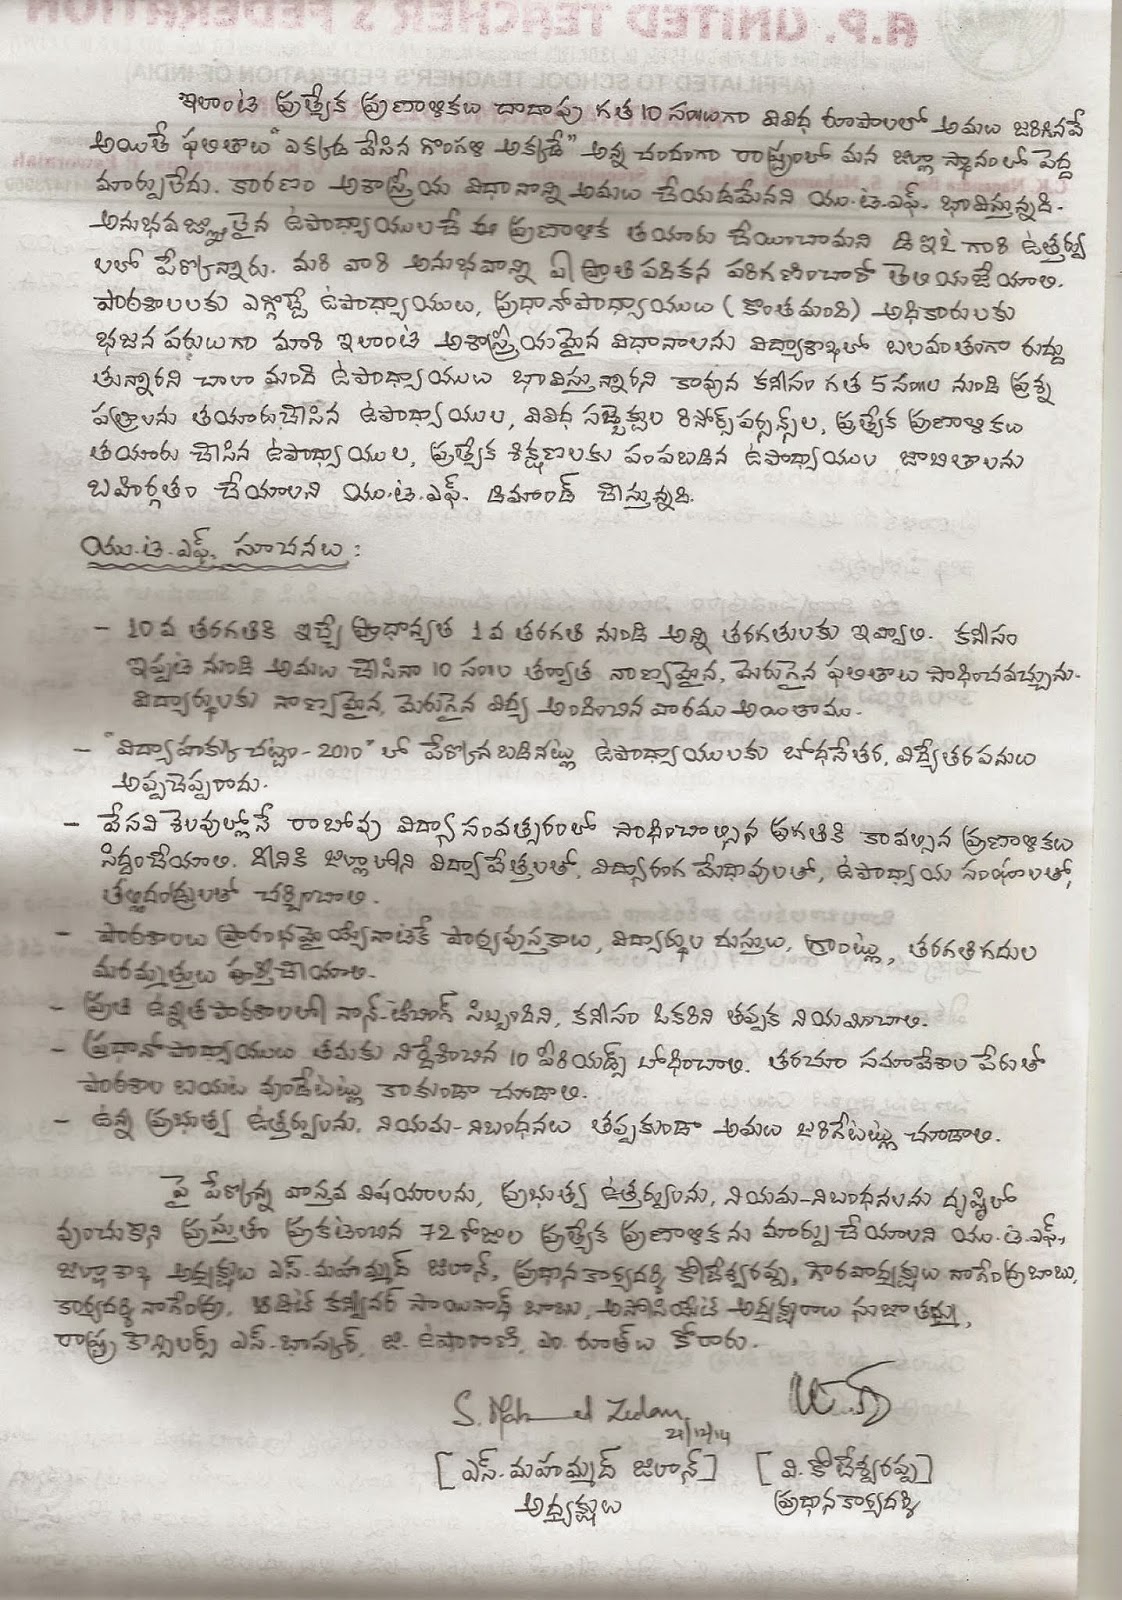 ఇలాంటి ప్రత్యేక ప్రణాళికలు దాదాపు గత 10 సం॥లుగా వివిధ రూపాలలో అమలు జరిగినవే
అయితే ఫలితాలు "ఎక్కడ వేసిన గొంగళి అక్కడే" అన్న చందంగా రాష్ట్రంలో మన జిల్లా స్థానంలో పెద్ద
మార్పులేదు. కారణం అశాస్త్రీయ విధానాన్ని అమలు చేయడమేనని యు.టి.ఎఫ్. భావిస్తున్నది.
అనుభవజ్ఞులైన ఉపాధ్యాయులచే ఈ ప్రణాళిక తయారు చేయించామని డిఇఓ గారి ఉత్తర్వు
లలో పేర్కొన్నారు. మరి వారి అనుభవాన్ని ఏ ప్రాతిపదికన పరిగణించారో తెలియజేయాలి.
పాఠశాలలకు ఎగ్గొట్టే ఉపాధ్యాయులు, ప్రధానోపాధ్యాయులు (కొంతమంది) అధికారులకు
భజన పరులుగా మారి ఇలాంటి అశాస్త్రీయమైన విధానాలను విద్యాశాఖలో బలవంతంగా రుద్దు
తున్నారని చాలా మంది ఉపాధ్యాయులు భావిస్తున్నారని కావున కనీసం గత 5 సం॥ల నుండి ప్రశ్న
పత్రాలను తయారుచేసిన ఉపాధ్యాయుల, వివిధ సబ్జెక్టుల రిసోర్స్‌పర్సన్స్‌ల, ప్రత్యేక ప్రణాళికలు
తయారు చేసిన ఉపాధ్యాయుల, ప్రత్యేక శిక్షణలకు పంపబడిన ఉపాధ్యాయుల జాబితాలను
బహిర్గతం చేయాలని యు.టి.ఎఫ్. డిమాండ్ చేస్తున్నది.
యు.టి.ఎఫ్. సూచనలు :
- 10వ తరగతికి ఇచ్చే ప్రాధాన్యత 1వ తరగతి నుండి అన్ని తరగతులకు ఇవ్వాలి. కనీసం
ఇప్పటి నుండి అమలు చేసినా 10 సం॥ల తర్వాత నాణ్యమైన, మెరుగైన ఫలితాలు సాధించవచ్చును.
విద్యార్థులకు నాణ్యమైన, మెరుగైన విద్య అందించిన వారము అయితాము.
- "విద్యాహక్కు చట్టం-2010" లో పేర్కొనబడినట్లు ఉపాధ్యాయులకు బోధనేతర, విద్యేతరపనులు
అప్పచెప్పరాదు.
- వేసవి శెలవుల్లోనే రాబోవు విద్యా సంవత్సరంలో సాధించాల్సిన ప్రగతికి కావల్సిన ప్రణాళికలు
సిద్ధంచేయాలి. దీనికి జిల్లాలోని విద్యావేత్తలతో, విద్యారంగ మేధావులతో, ఉపాధ్యాయ సంఘాలతో,
తల్లిదండ్రులతో చర్చించాలి.
- పాఠశాలలు ప్రారంభమైయ్యేనాటికే పాఠ్యపుస్తకాలు, విద్యార్థుల దుస్తులు, గ్రాంట్లు, తరగతిగదుల
మరమ్మత్తులు పూర్తిచేయాలి.
- ప్రతి ఉన్నతపాఠశాలలో నాన్-టీచింగ్ సిబ్బందిని, కనీసం ఒకరిని తప్పక నియమించాలి.
- ప్రధానోపాధ్యాయులు తమకు నిర్దేశించిన 10 పీరియడ్స్ బోధించాలి. తరచూ సమావేశాల పేరుతో
పాఠశాల బయట వుండేటట్లు కాకుండా చూడాలి.
- ఉన్న ప్రభుత్వ ఉత్తర్వులను, నియమ-నిబంధనలు తప్పకుండా అమలు జరిగేటట్లు చూడాలి.
పై పేర్కొన్న వాస్తవ విషయాలను, ప్రభుత్వ ఉత్తర్వులను, నియమ-నిబంధనలను దృష్టిలో
వుంచుకొని ప్రస్తుతం ప్రకటించిన 72 రోజుల ప్రత్యేక ప్రణాళికను మార్పు చేయాలని యు.టి.ఎఫ్,
జిల్లాశాఖ అధ్యక్షులు ఎస్.మహమ్మద్ జిలాన్, ప్రధానకార్యదర్శి కోటేశ్వరప్ప, గౌరవాధ్యక్షులు నాగేంద్రబాబు,
కార్యదర్శి నాగేంద్ర, ఆడిట్ కన్వీనర్ సాయినాథ్ బాబు, అసోసియేట్ అధ్యక్షురాలు సుజాతమ్మ,
రాష్ట్ర కౌన్సిలర్స్ ఎస్.భాస్కర్, జి. ఉషారాణి, ఎం. రూత్‌లు కోరారు.
21/12/14
[ఎస్.మహమ్మద్ జిలాన్] [వి.కోటేశ్వరప్ప]
అధ్యక్షులు ప్రధానకార్యదర్శి